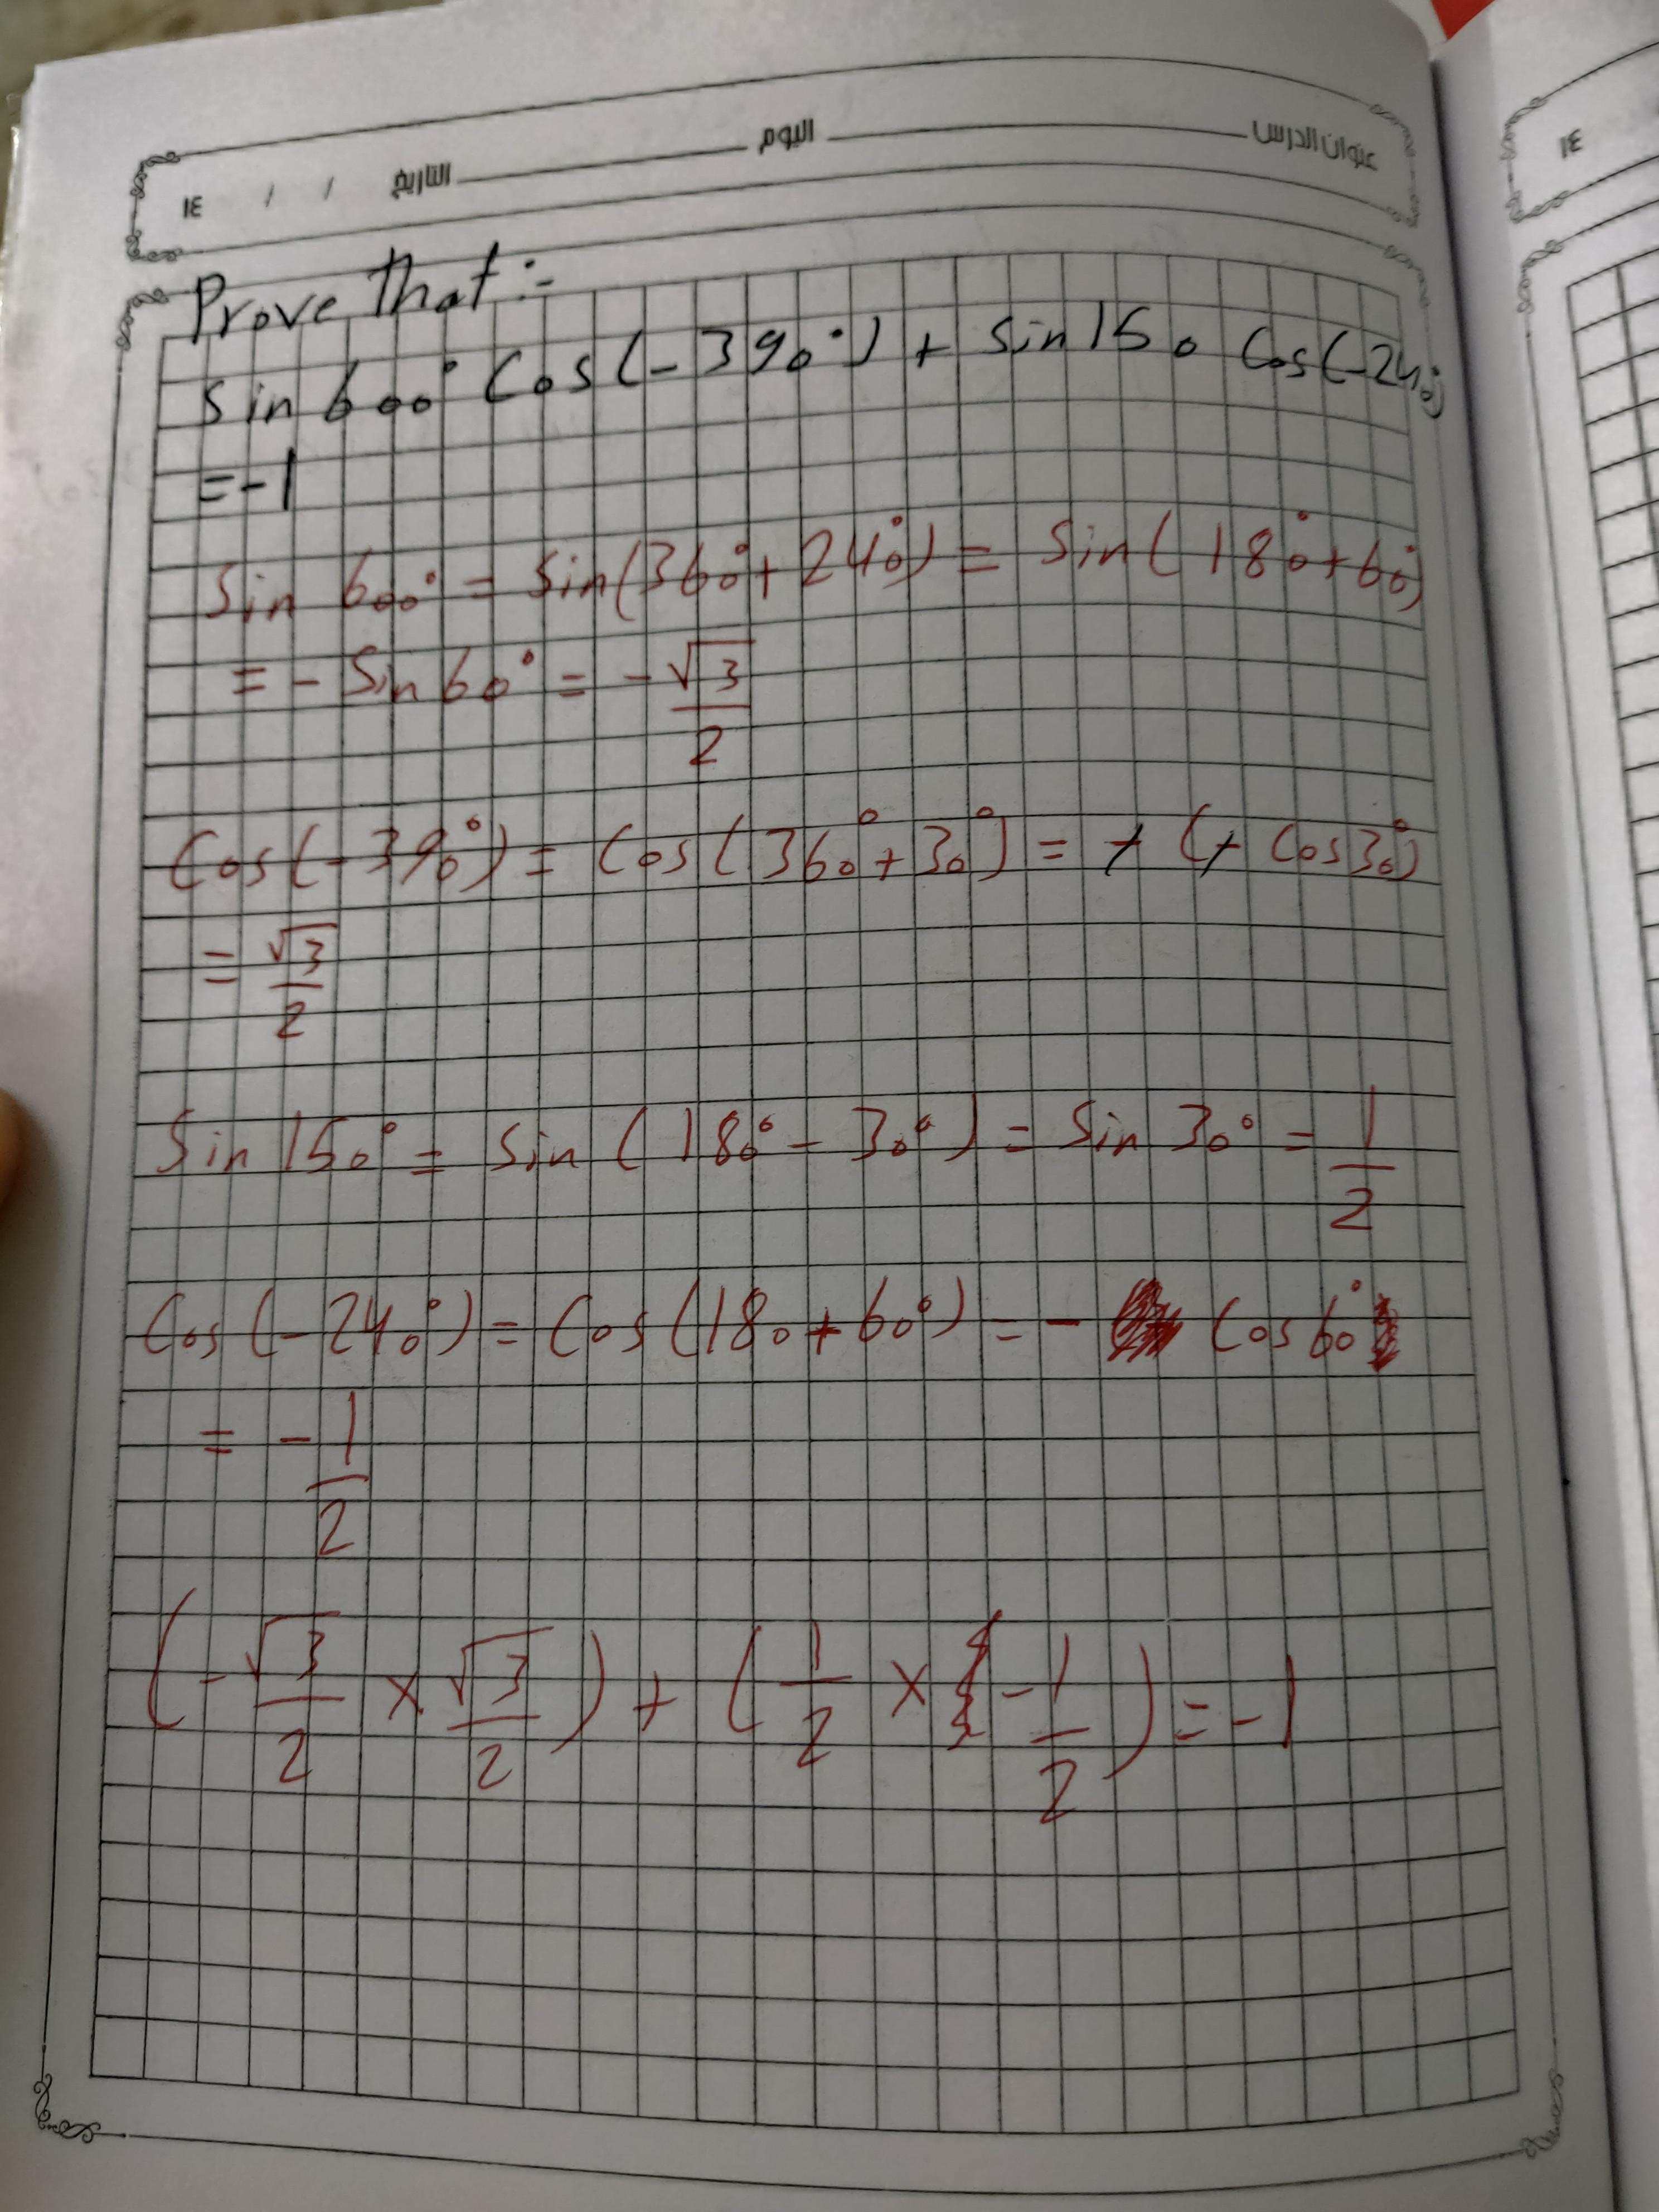 عنوان الدرس اليوم التاريخ / / ١٤
١٤
Prove that :-
sin 600° Cos(-390°) + sin 150 Cos(-240°)
= -1
Sin 600° = Sin(360°+240°) = Sin(180°+60°)
= - Sin 60° = -√3/2
Cos(-390°) = Cos(360°+30°) = + (+ Cos30°)
= √3/2
Sin 150° = Sin (180° - 30°) = Sin 30° = 1/2
Cos(-240°) = Cos(180+60°) = - Cos60°
= -1/2
(-√3/2 × √3/2) + (1/2 × -1/2) = -1